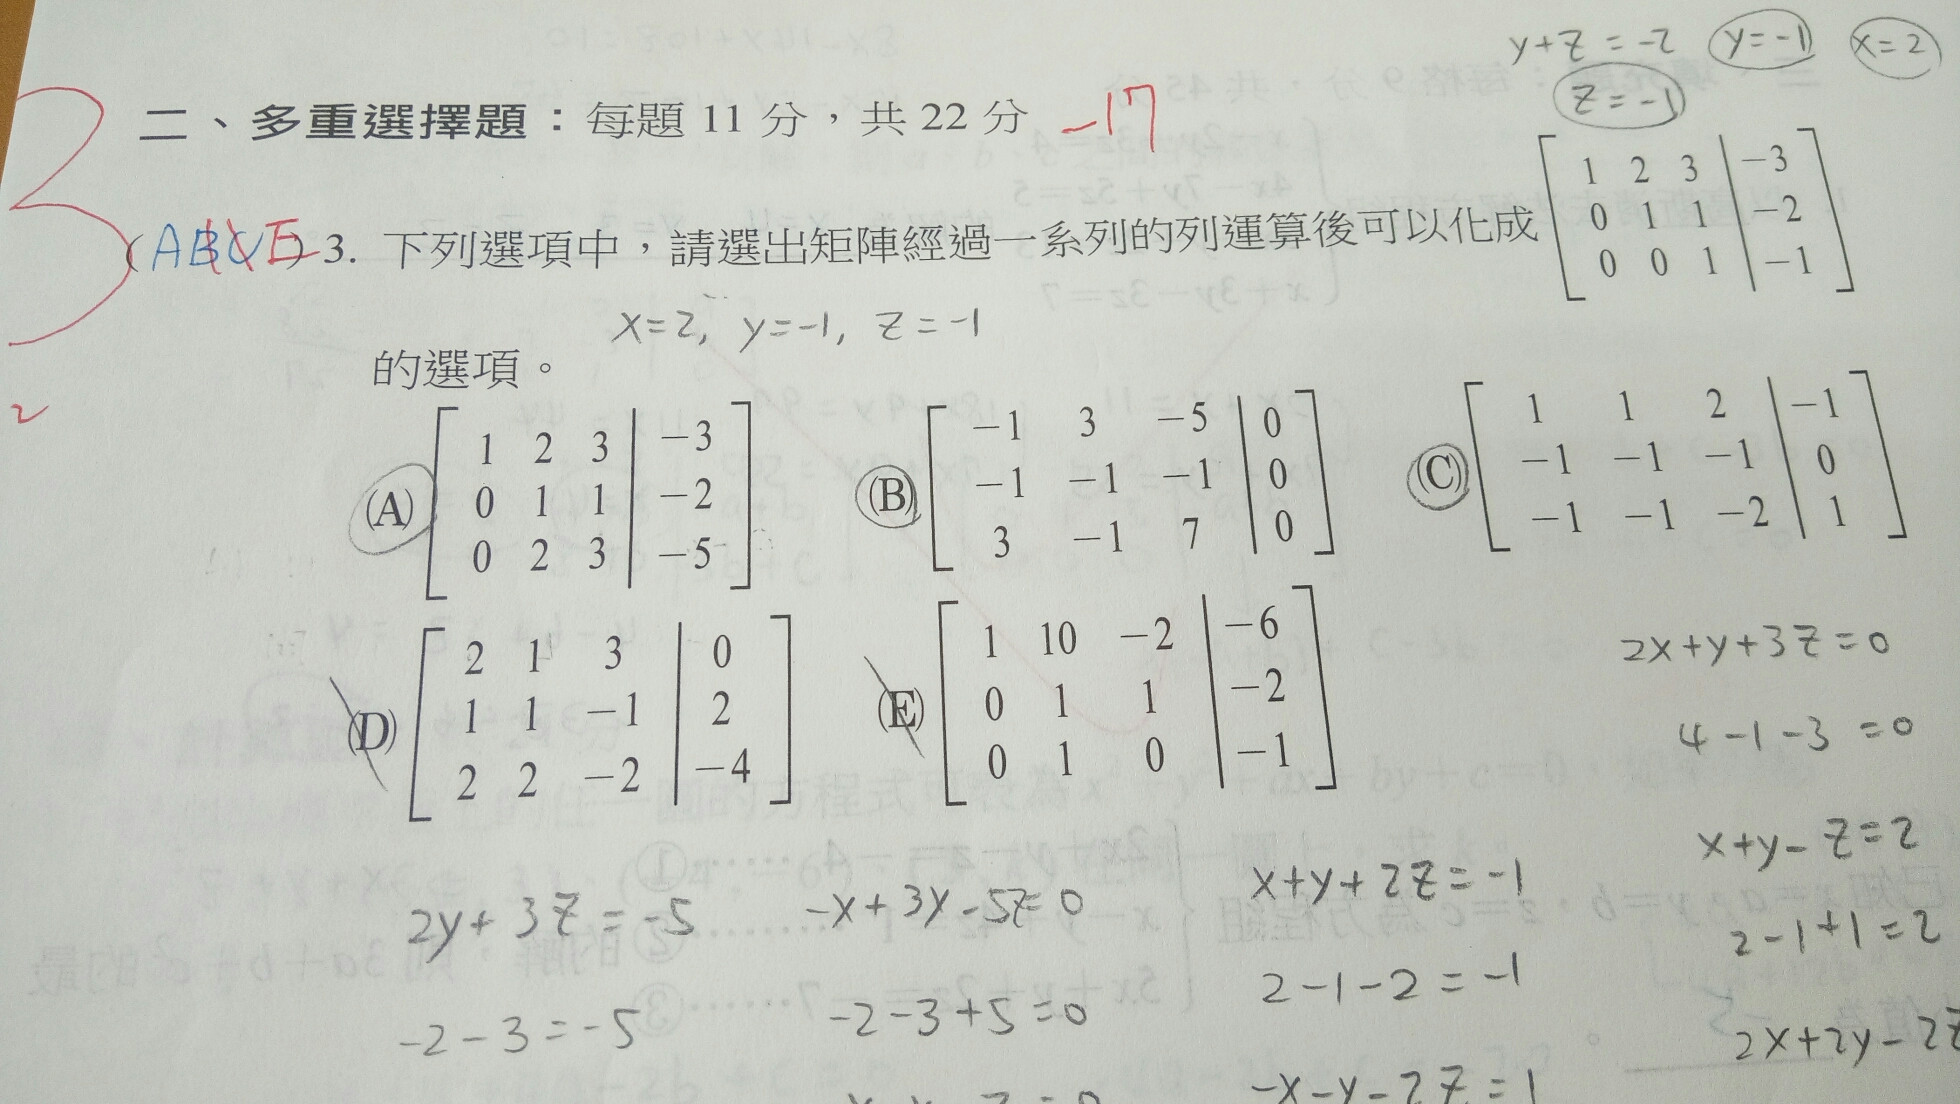 y+z=-2 y=-1 x=2
z=-1
二、多重選擇題：每題 11 分，共 22 分 -17
(ABCE) 3. 下列選項中，請選出矩陣經過一系列的列運算後可以化成 [1 2 3 | -3
0 1 1 | -2
0 0 1 | -1]
x=2, y=-1, z=-1
的選項。
2
(A) [1 2 3 | -3
0 1 1 | -2
0 2 3 | -5]
(B) [-1 3 -5 | 0
-1 -1 -1 | 0
3 -1 7 | 0]
(C) [1 1 2 | -1
-1 -1 -1 | 0
-1 -1 -2 | 1]
(D) [2 1 3 | 0
1 1 -1 | 2
2 2 -2 | -4]
(E) [1 10 -2 | -6
0 1 1 | -2
0 1 0 | -1]
2x+y+3z=0
4-1-3=0
x+y-z=2
2-1+1=2
2x+2y-2z
2y+3z=-5
-2-3=-5
-x+3y-5z=0
-2-3+5=0
x+y+2z=-1
2-1-2=-1
-x-y-2z=1